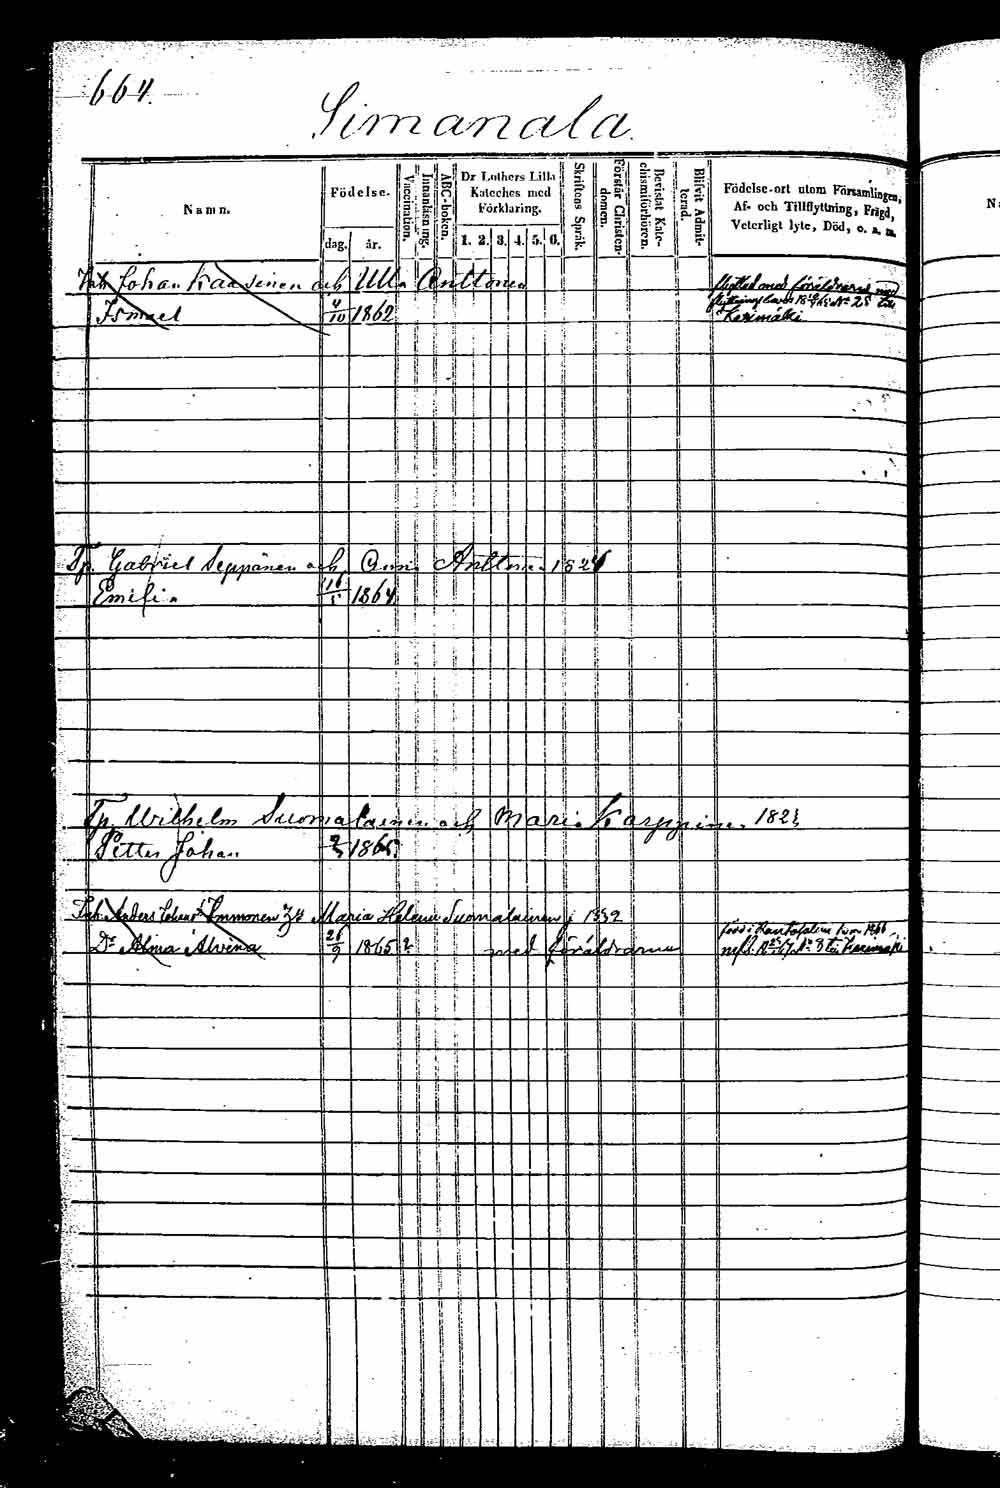 664.
Simanala.
Namn.
Födelse.
dag. år.
Vaccination.
Innanläsning.
ABC-boken.
Dr Luthers Lilla Kateches med Förklaring.
1. 2. 3. 4. 5. 6.
Skriftens Språk.
Förstår Christendomen.
Bevistat Katechismiförhören.
Blifvit Admitterad.
Födelse-ort utom Församlingen,
Af- och Tillflyttning, Frägd,
Veterligt lyte, Död, o. s. m.
Johan Kaasinen och Ulla Anttonen
flyttad med föräldrarne med
Ismael 4/10 1862
Kerimäki
Tp. Gabriel Seppänen och Anna Anttonen
Emilia 16/5 1864
Tp. Wilhelm Suomalainen och Maria Karppinen
Petter Johan 1865
Anders Immonen Maria Helena Suomalainen
Dr Alina Alvina 26/9 1865 med föräldrarne